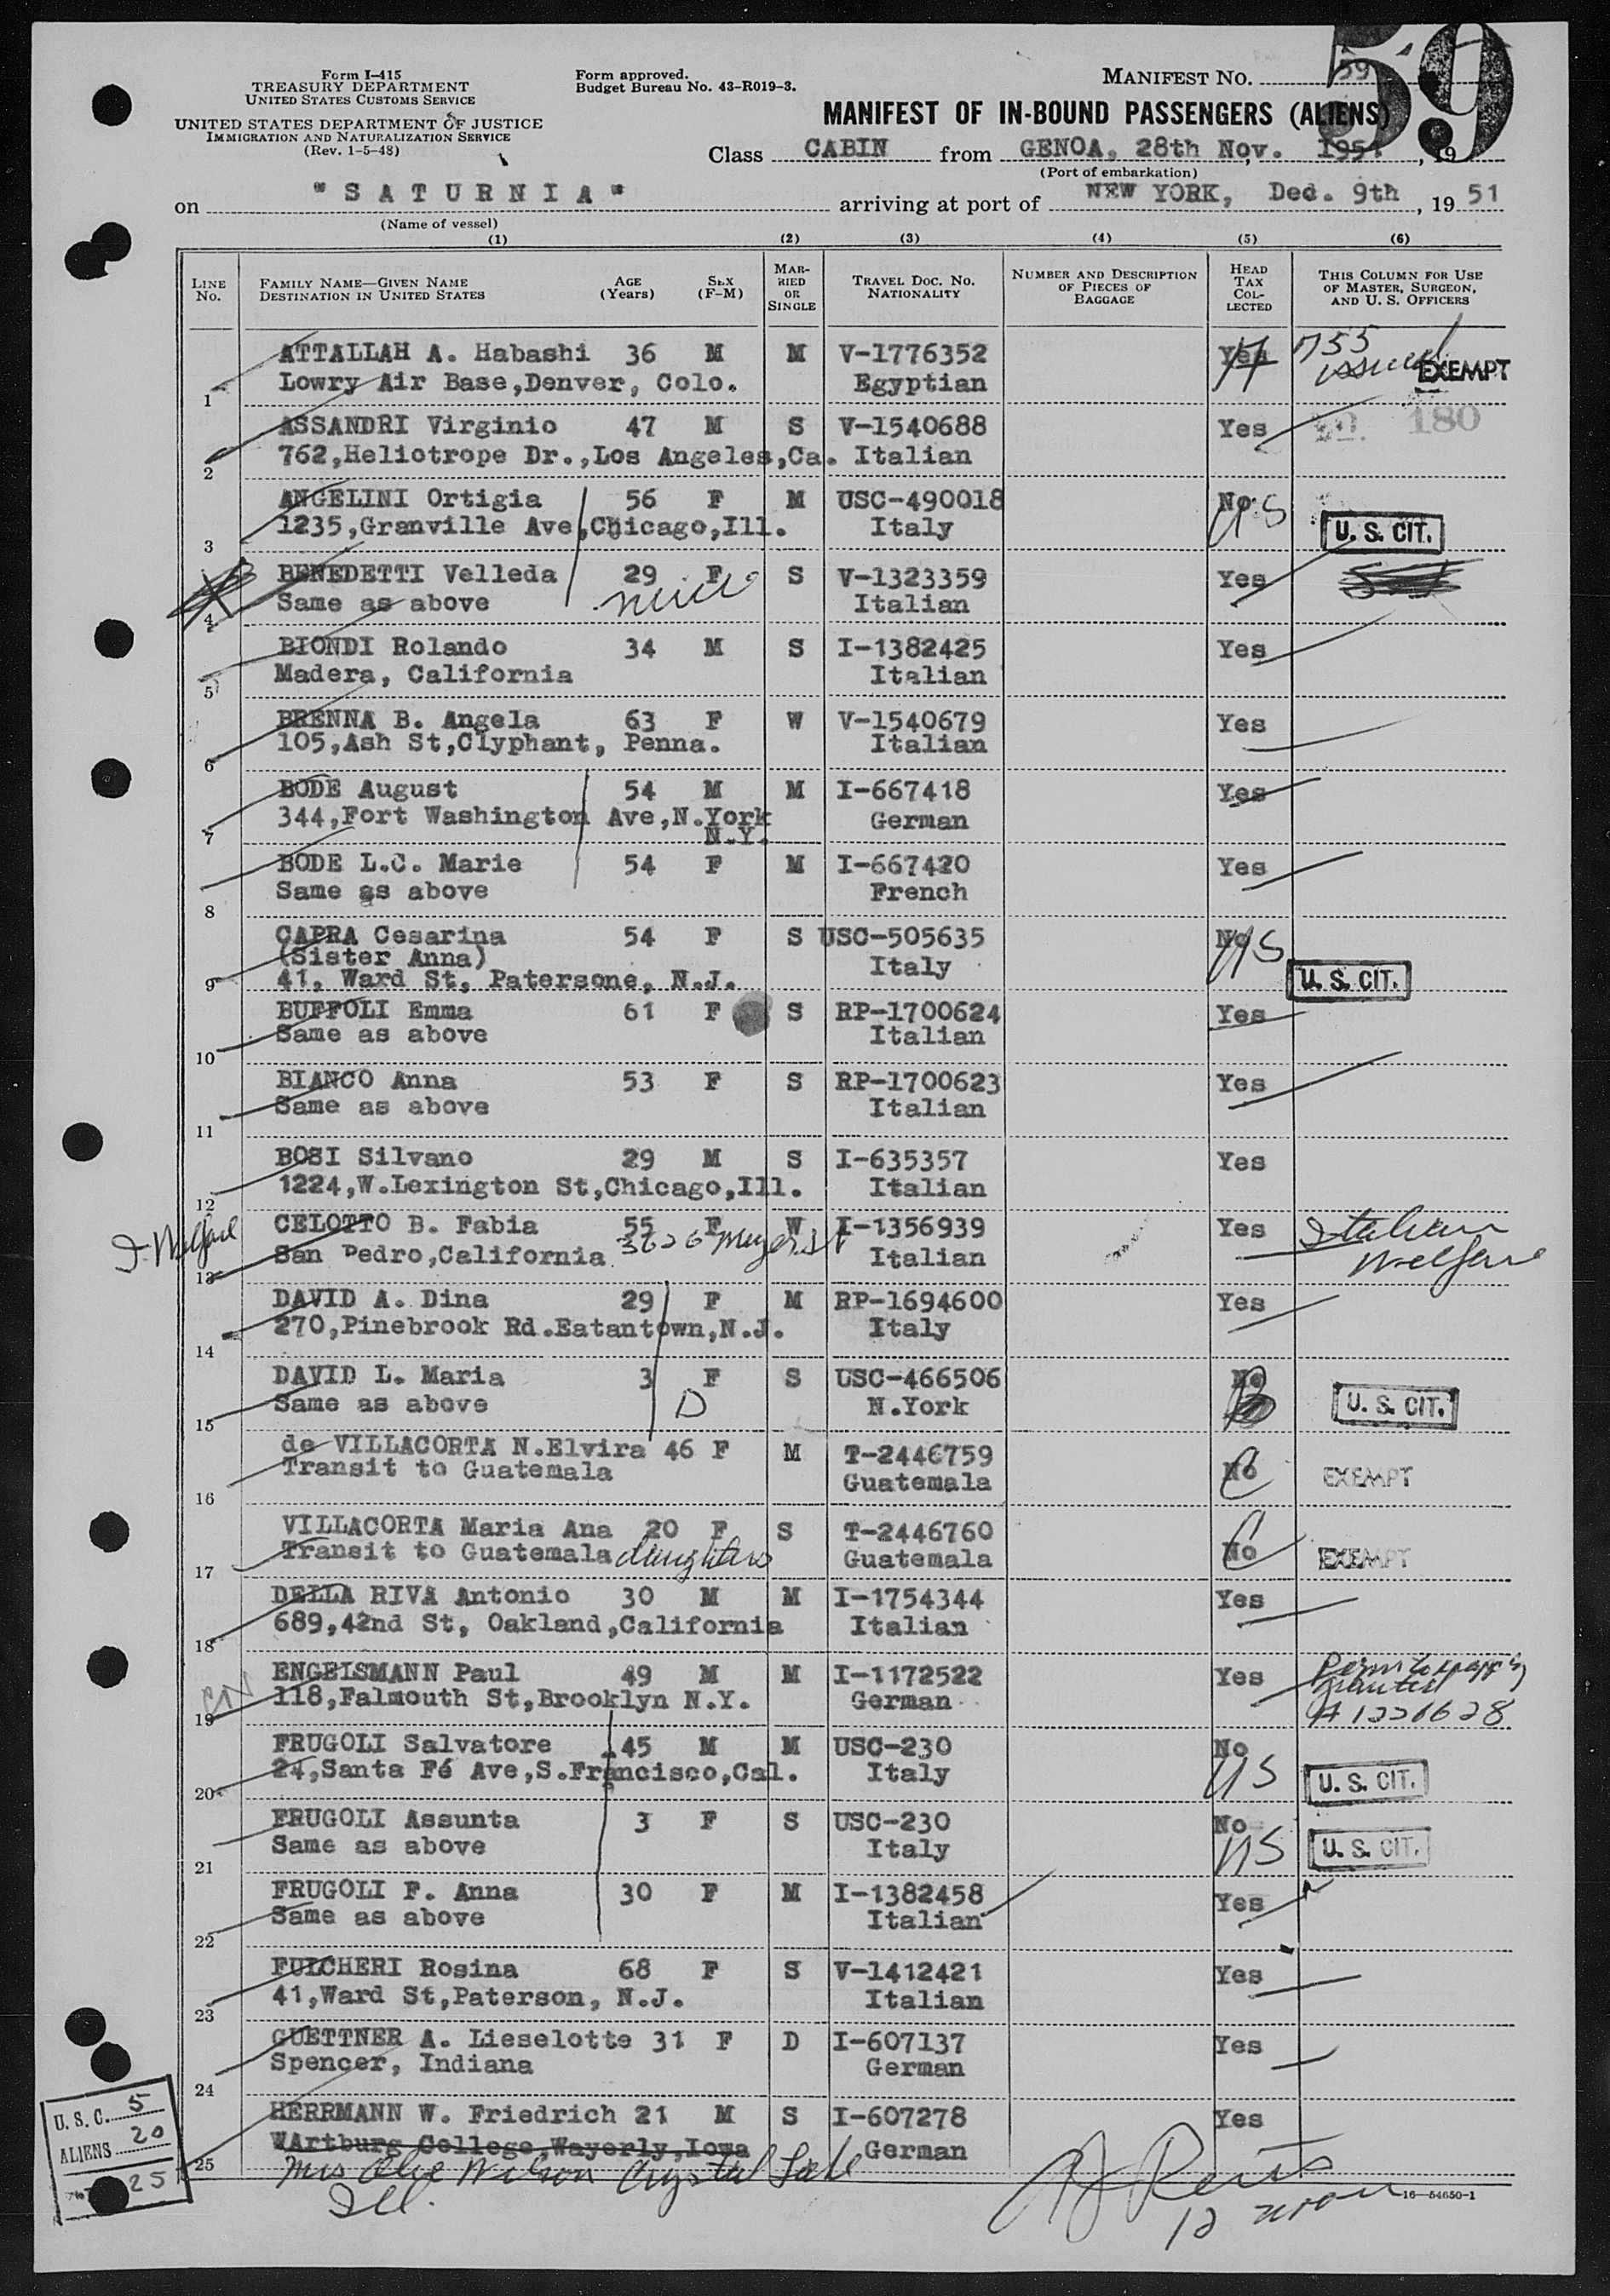 59
Form I-415
TREASURY DEPARTMENT
UNITED STATES CUSTOMS SERVICE
UNITED STATES DEPARTMENT OF JUSTICE
IMMIGRATION AND NATURALIZATION SERVICE
(Rev. 1-5-48)
Form approved.
Budget Bureau No. 43-R019-3.
MANIFEST NO. 59
MANIFEST OF IN-BOUND PASSENGERS (ALIENS)
Class CABIN from GENOA, 28th Nov. 1951, 19
(Port of embarkation)
on "SATURNIA" arriving at port of NEW YORK, Ded. 9th, 19 51
(Name of vessel)
(1) (2) (3) (4) (5) (6)
LINE NO.
FAMILY NAME—GIVEN NAME
DESTINATION IN UNITED STATES
AGE (Years)
SEX (F-M)
MARRIED OR SINGLE
TRAVEL DOC. NO. NATIONALITY
NUMBER AND DESCRIPTION OF PIECES OF BAGGAGE
HEAD TAX COLLECTED
THIS COLUMN FOR USE OF MASTER, SURGEON, AND U. S. OFFICERS
ATTALLAH A. Habashi 36 M M V-1776352 Yes 755 issued EXEMPT
1 Lowry Air Base,Denver, Colo. Egyptian
ASSANDRI Virginio 47 M S V-1540688 Yes 180
2 762,Heliotrope Dr.,Los Angeles,Ca. Italian
ANGELINI Ortigia 56 F M USC-490018 No US
3 1235,Granville Ave,Chicago,Ill. Italy U. S. CIT.
BENEDETTI Velleda 29 F S V-1323359 Yes
4 Same as above niece Italian
BIONDI Rolando 34 M S I-1382425 Yes
5 Madera, California Italian
BRENNA B. Angela 63 F W V-1540679 Yes
6 105,Ash St,Clyphant, Penna. Italian
BODE August 54 M M I-667418 Yes
7 344,Fort Washington Ave,N.York N.Y. German
BODE L.C. Marie 54 F M I-667420 Yes
8 Same as above French
CAPRA Cesarina 54 F S USC-505635 No US
(Sister Anna) Italy
9 41, Ward St, Patersone, N.J. U. S. CIT.
BUFFOLI Emma 61 F S RP-1700624 Yes
10 Same as above Italian
BIANCO Anna 53 F S RP-1700623 Yes
11 Same as above Italian
BOSI Silvano 29 M S I-635357 Yes
12 1224,W.Lexington St,Chicago,Ill. Italian
I. Welfare CELOTTO B. Fabia 55 F W I-1356939 Yes Italian Welfare
13 San Pedro,California Italian
DAVID A. Dina 29 F M RP-1694600 Yes
14 270,Pinebrook Rd.Eatantown,N.J. Italy
DAVID L. Maria 3 F S USC-466506 No
15 Same as above D N.York U. S. CIT.
de VILLACORTA N.Elvira 46 F M T-2446759 No
16 Transit to Guatemala Guatemala EXEMPT
VILLACORTA Maria Ana 20 F S T-2446760 No
17 Transit to Guatemala daughter Guatemala EXEMPT
DELLA RIVA Antonio 30 M M I-1754344 Yes
18 689,42nd St, Oakland,California Italian
ENGELSMANN Paul 49 M M I-1172522 Yes
19 118,Falmouth St,Brooklyn N.Y. German
FRUGOLI Salvatore 45 M M USC-230 No US
20 24,Santa Fé Ave,S.Francisco,Cal. Italy U. S. CIT.
FRUGOLI Assunta 3 F S USC-230 No US
21 Same as above Italy U. S. CIT.
FRUGOLI F. Anna 30 F M I-1382458 Yes
22 Same as above Italian
FULCHERI Rosina 68 F S V-1412421 Yes
23 41,Ward St,Paterson, N.J. Italian
GUETTNER A. Lieselotte 31 F D I-607137 Yes
24 Spencer, Indiana German
HERRMANN W. Friedrich 21 M S I-607278 Yes
25 WArtburg College,Wayerly,Iowa German
Mrs Wilson Crystal Lake
Ill.
U. S. C. 5
ALIENS 20
25
16—54650-1
12 noon